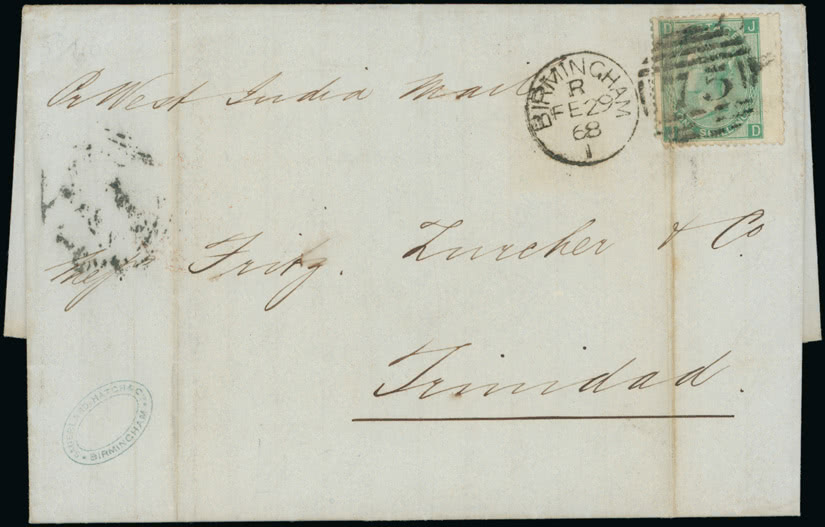 Pr West India Mail
BIRMINGHAM
R
FE 29
68
1
D J
75
D
Messrs Fritz. Zurcher & Co
Trinidad.
HATCH & Co
BIRMINGHAM